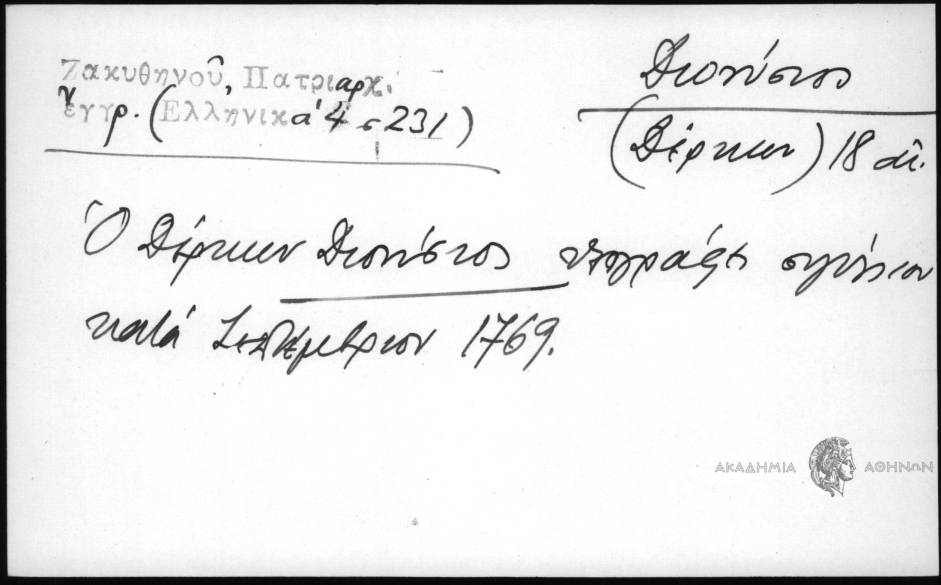 Ζακυθηνοῦ, Πατριαρχ.
ἔγγρ. (Ἑλληνικά 4 σ 231)
Διονύσιος
(Δέρκων) 18 αἰ.
Ὁ Δέρκων Διονύσιος ὑπογράφει σιγίλλιον
κατά Σεπτέμβριον 1769.
ΑΚΑΔΗΜΙΑ ΑΘΗΝΩΝ